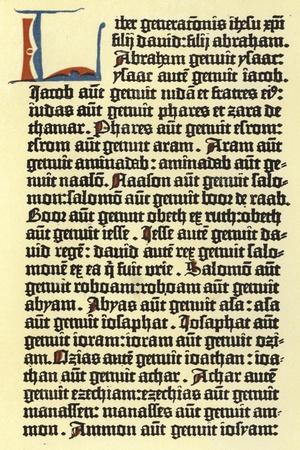 Liber generationis ihesu xpi
filij david: filij abraham.
Abraham genuit ysaac:
ysaac autē genuit iacob.
Jacob aūt genuit iudā et fratres ei⁹:
iudas aūt genuit phares et zara de
thamar. Phares aūt genuit esrom:
esrom aūt genuit aram. Aram aūt
genuit aminadab: aminadab aūt ge-
nuit naasō. Naason aūt genuit salo-
mon: salomō aūt genuit booz de raab.
Booz aūt genuit obeth ex ruth: obeth
aūt genuit iesse. Jesse autē genuit da-
uid regē: dauid autē rex genuit salo-
monē ex ea q̄ fuit vrie. Salomon aūt
genuit roboam: roboam aūt genuit
abyam. Abyas aūt genuit asa: asa
aūt genuit iosaphat. Josaphat aūt
genuit ioram: ioram aūt genuit ozi-
am. Ozias autē genuit ioathan: ioa-
than aūt genuit achaz. Achaz autē
genuit ezechiam: ezechias aūt genuit
manassen: manasses aūt genuit am-
mon. Ammon aūt genuit iosyam: